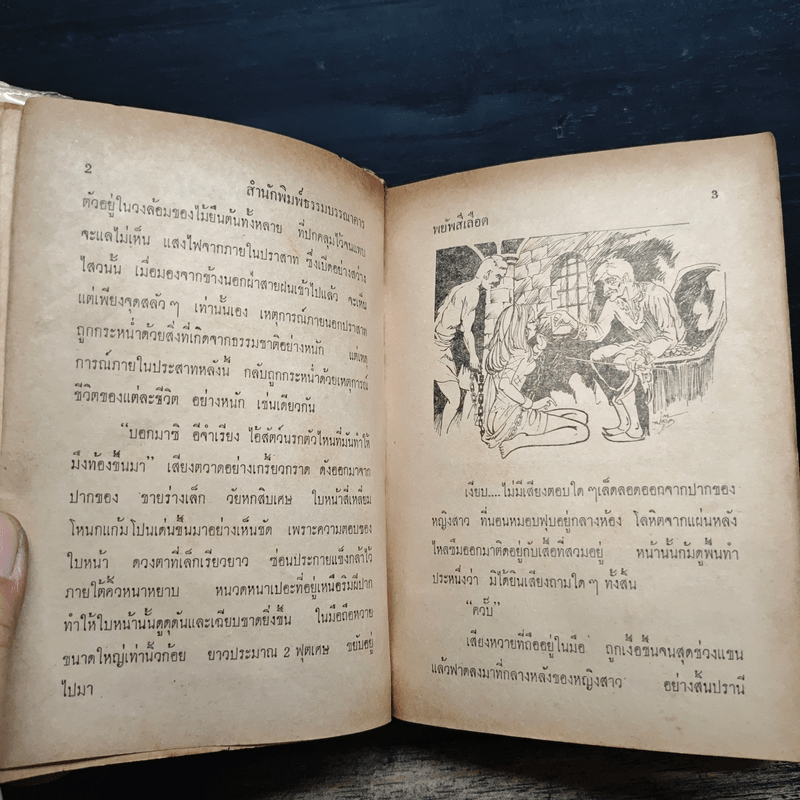 2
สำนักพิมพ์ธรรมบรรณาคาร
ตัวอยู่ในวงล้อมของไม้ยืนต้นทั้งหลาย ที่ปกคลุมไว้จนแทบ
จะแลไม่เห็น แสงไฟจากภายในปราสาท ซึ่งเปิดอย่างสว่าง
ไสวนั้น เมื่อมองจากข้างนอกฝ่าสายฝนเข้าไปแล้ว จะเห็น
แต่เพียงจุดสลัว ๆ เท่านั้นเอง เหตุการณ์ภายนอกปราสาท
ถูกกระหน่ำด้วยสิ่งที่เกิดจากธรรมชาติอย่างหนัก แต่เหตุ
การณ์ภายในประสาทหลังนี้ กลับถูกกระหน่ำด้วยเหตุการณ์
ชีวิตของแต่ละชีวิต อย่างหนัก เช่นเดียวกัน
“บอกมาซิ อีจำเรียง ไอ้สัตว์นรกตัวไหนที่มันทำให้
มึงท้องขึ้นมา” เสียงตวาดอย่างเกรี้ยวกราด ดังออกมาจาก
ปากของ ชายร่างเล็ก วัยหกสิบเศษ ใบหน้าสี่เหลี่ยม
โหนกแก้มโปนเด่นขึ้นมาอย่างเห็นชัด เพราะความตอบของ
ใบหน้า ดวงตาที่เล็กเรียวยาว ซ่อนประกายแข็งกล้าไว้
ภายใต้คิ้วหนาหยาบ หนวดหนาเปอะที่อยู่เหนือริมฝีปาก
ทำให้ใบหน้านั้นดูดุดันและเฉียบขาดยิ่งขึ้น ในมือถือหวาย
ขนาดใหญ่เท่านิ้วก้อย ยาวประมาณ 2 ฟุตเศษ ขยับอยู่
ไปมา
3
พยัพสีเลือด
เงียบ....ไม่มีเสียงตอบใด ๆ เล็ดลอดออกจากปากของ
หญิงสาว ที่นอนหมอบฟุบอยู่กลางห้อง โลหิตจากแผ่นหลัง
ไหลซึมออกมาติดอยู่กับเสื้อที่สวมอยู่ หน้านั้นก้มดูพื้นทำ
ประหนึ่งว่า มิได้ยินเสียงถามใด ๆ ทั้งสิ้น
“ควั๊บ”
เสียงหวายที่ถืออยู่ในมือ ถูกเงื้อขึ้นจนสุดช่วงแขน
แล้วฟาดลงมาที่กลางหลังของหญิงสาว อย่างสิ้นปรานี